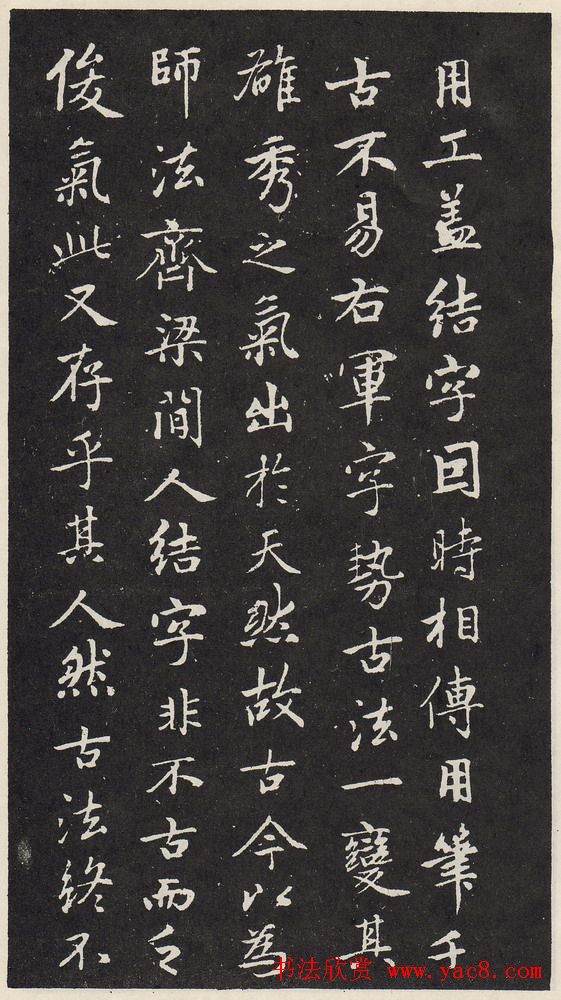 用工盖结字因時相傳用筆千
古不易右軍字勢古法一變其
雄秀之氣出於天然故古今以為
師法齊梁間人結字非不古而乏
俊氣此又存乎其人然古法終不
书法欣赏 www.yac8.com